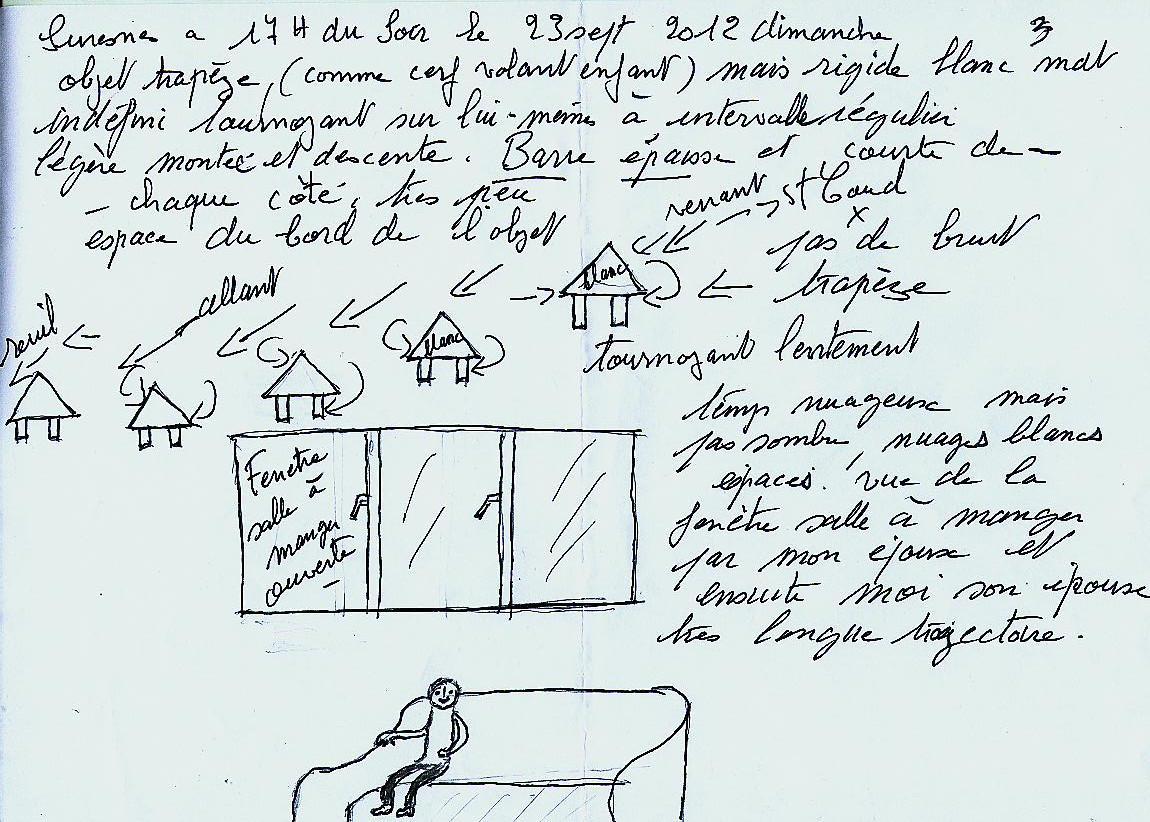 Suresnes a 17H du Soir le 23 sept 2012 dimanche
3
objet trapèze, (comme cerf volant enfant) mais rigide blanc mat
indéfini tournoyant sur lui-même à intervalle régulier
légère montée et descente. Barre épaisse et courte de -
- chaque côté, très peu
espace du bord de l'objet
venant St Cloud
pas de bruit
trapèze
blanc
allant
blanc
tournoyant lentement
temps nuageux mais
pas sombre, nuages blancs
épaces. vue de la
fenêtre salle à manger
par mon époux et
ensuite moi son épouse
très longue trajectoire.
Fenêtre
salle à
manger
ouverte